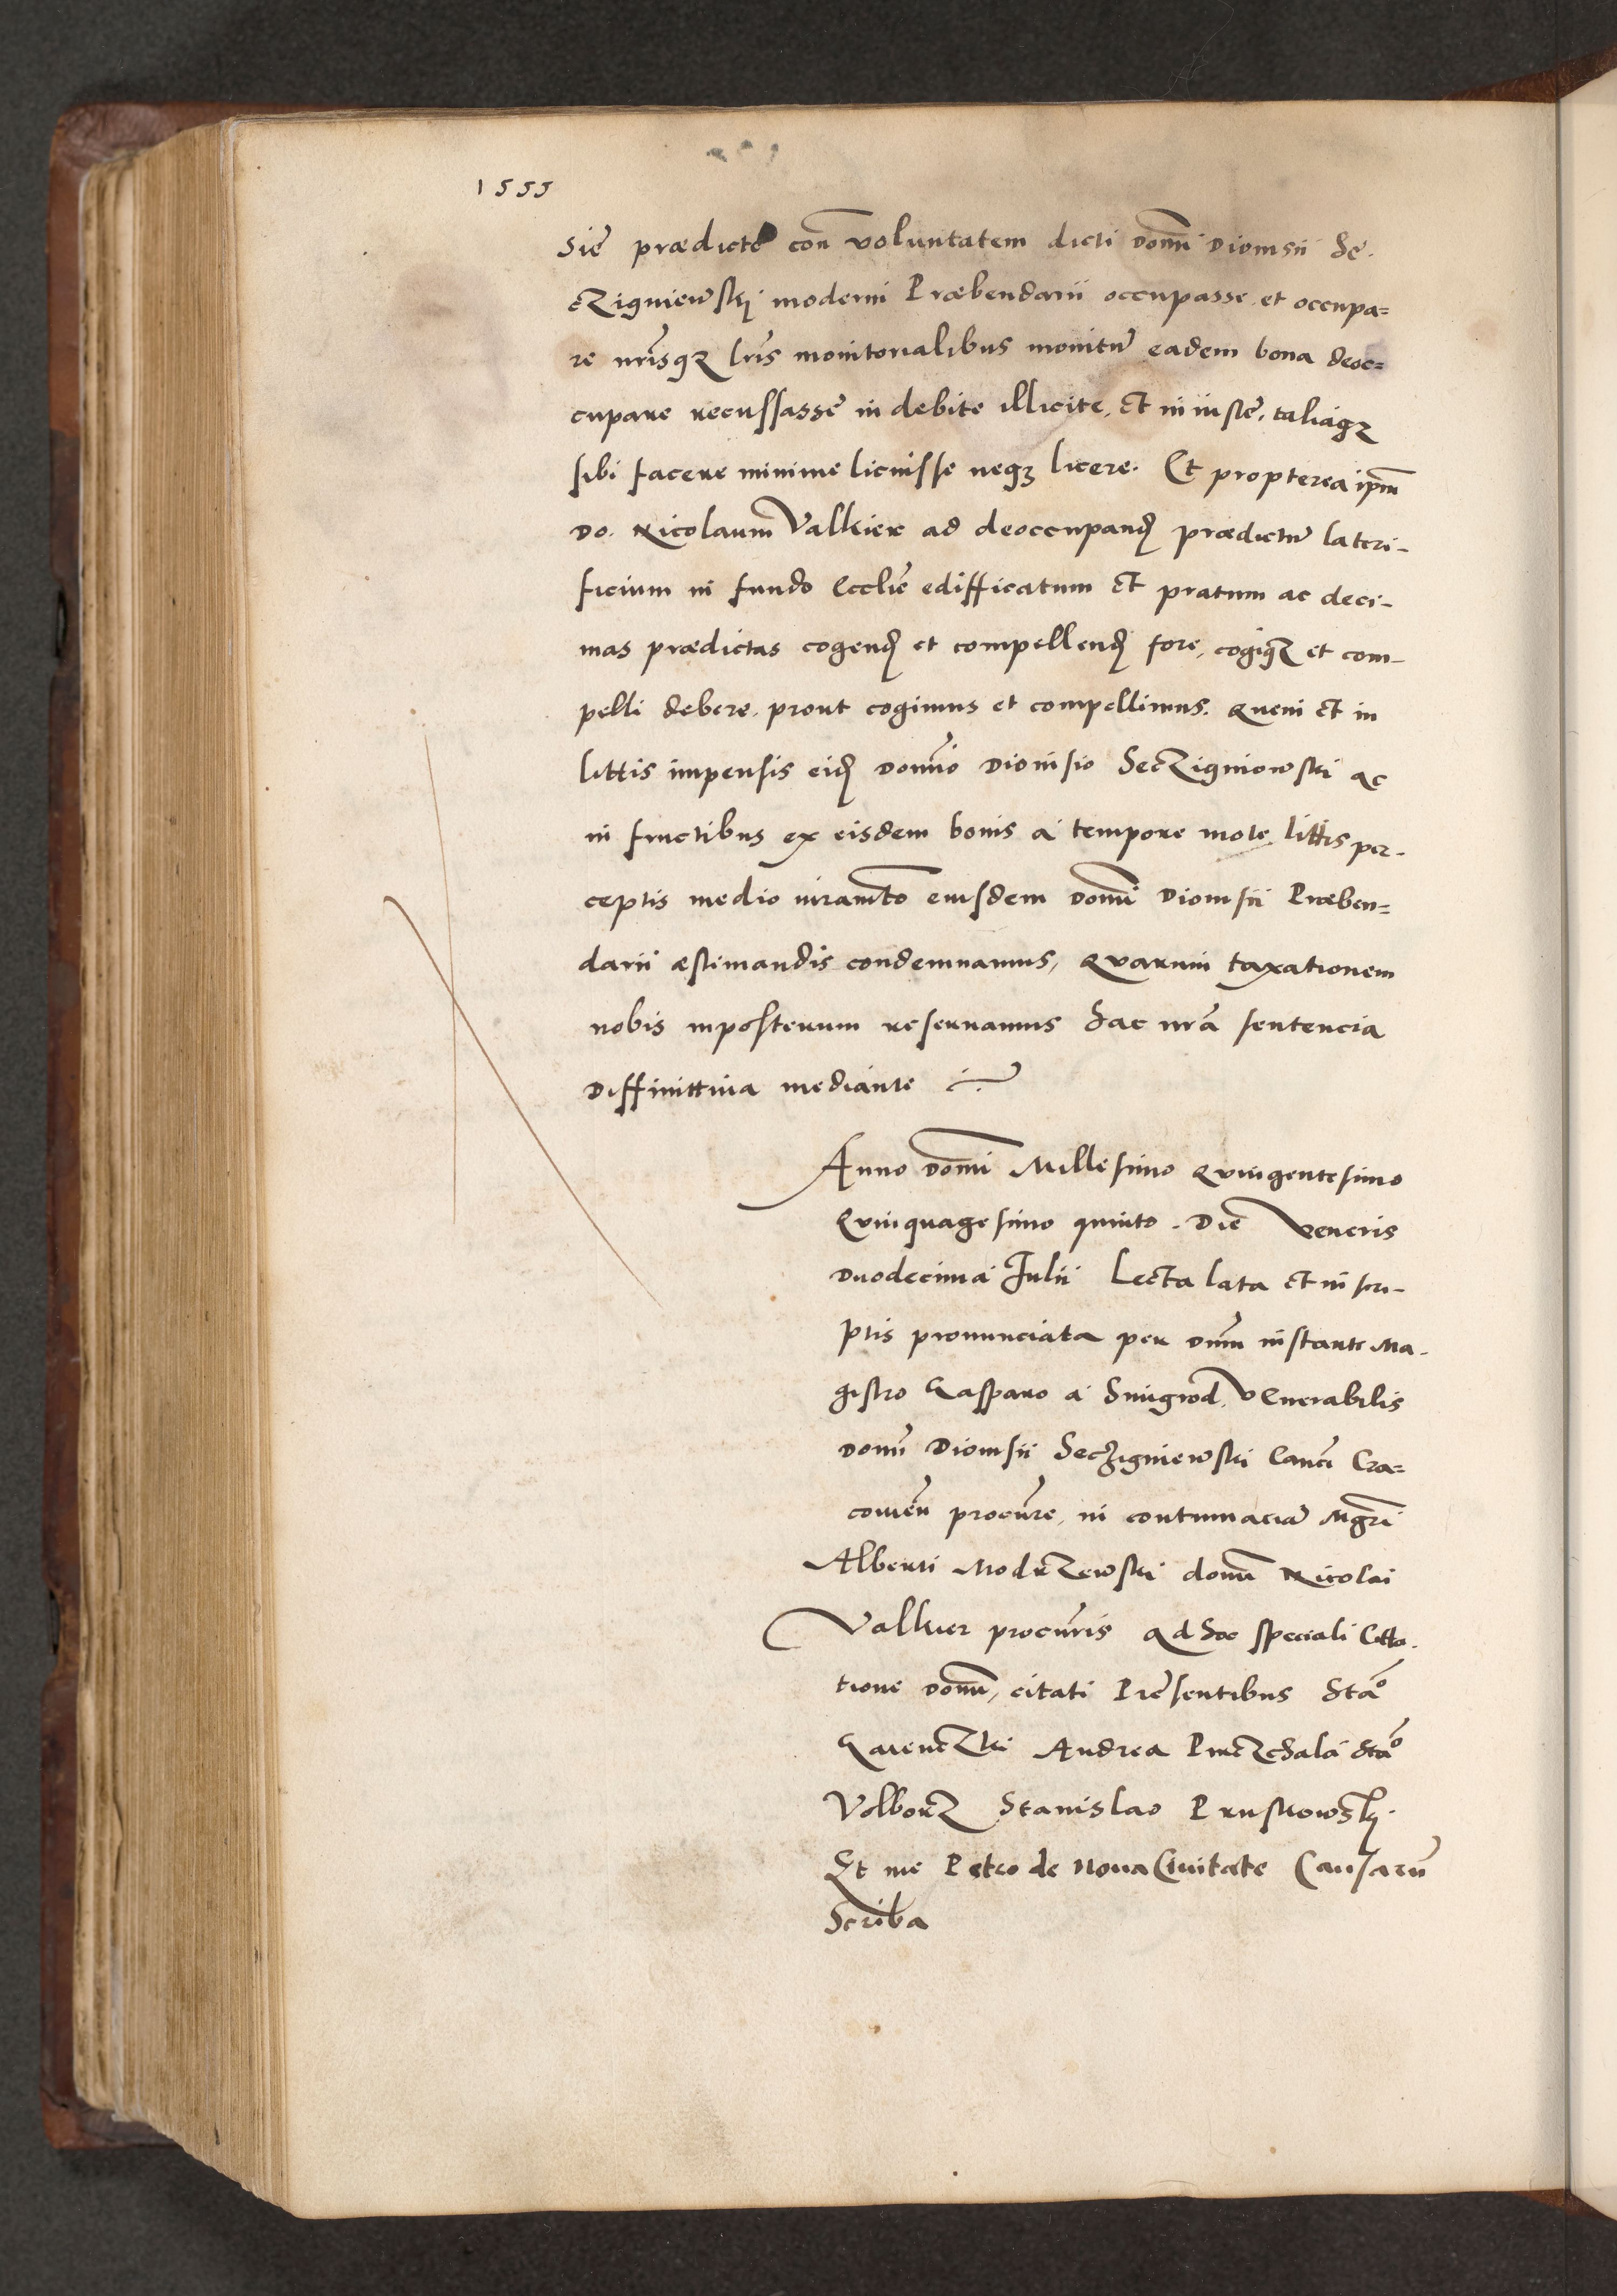 1555
sie praedicte con voluntatem dicti Domi Dionisii Se-
cZigniewskj moderni Praebendarii occupasse et occupa=
re nrisqz lris monitorialibus monitu eadem bona deoc=
cupare recussasse in debite illicite, et in iuste, taliaqz
sibi facere minime licuisse neqz licere. Et propterea ipm
Do. Nicolaum Valkier ad deoccupand praedictu lateri-
ficium in fundo Ecclie edifficatum et pratum ac deci-
mas praedictas cogend et compellend fore, cogiqz et com-
pelli debere, prout cogimus et compellimus. Quem et in
littis impensis eid Domno Dionisio SecZigniowski ac
in fructibus ex eisdem bonis a tempore mote littis per-
ceptis medio iuramto eiusdem Domi Dionisii Praeben=
darii aestimandis condemnamus, Quarum taxationem
nobis inposterum reseruamus Hac nra sentencia
Diffinittiua mediante
Anno Domi Millesimo Quingentesimo
Quinquagesimo quinto. Die Veneris
Duodecima Julii Lecta lata et in scri-
ptis pronunciata per Dnm instante Ma-
gistro Gasparo a Smigrod, Venerabilis
Domi Dionisii Seczigniewski Canci Cra=
couien procure, in contumacia Mgri
Alberti ModrZewski domi Nicolai
Valkier procuris ad hoc speciali Citta-
tione Domi, citati Presentibus Stao
Andrea Stao
VolborZ Stanislao Pruskowskj.
Et me Petro de Noua Ciuitate Causaru
Scriba